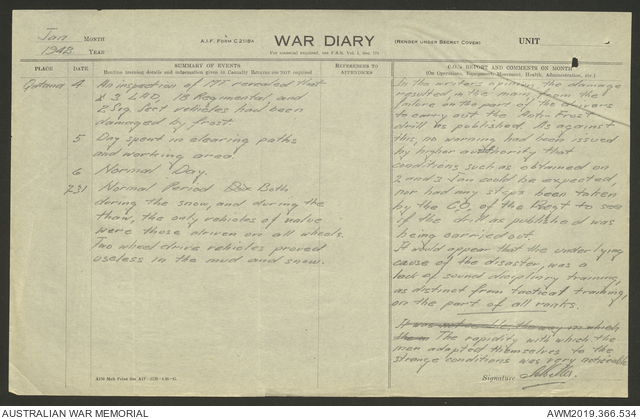 Jan MONTH
1942 YEAR
A.I.F. FORM C2118A
WAR DIARY
(RENDER UNDER SECRET COVER)
UNIT
PLACE
DATE
SUMMARY OF EVENTS
Routine training details and information given in Casualty Returns are NOT required
REFERENCES TO
APPENDICES
C.O.'s REPORT AND COMMENTS ON MONTH
(On Operations, Equipment, Movement, Health, Administration, etc.)
4 An inspection of MT revealed that
3 LAD, 18 Regmental, and
2 Sig Sect vehicles had been
damaged by frost
5 Day spent in clearing paths
and working area.
6 Normal Day.
7-31 Normal Period Both
during the snow, and during the
thaw, the only vehicles of value
were those driven on all wheels.
Two wheel drive vehicles proved
useless in the mud and snow.
In the writers opinion the damage
resulted in the main from the
failure on the part of the drivers
to carry out the Anti-Frost
drill as published. As against
this, no warning had been issued
by higher authority that
conditions such as obtained on
2 and 3 Jan could be expected,
nor had any steps been taken
by the CO of the Regt to see
if the drill as published was
being carried out.
It would appear that the underlying
cause of the disaster, was a
lack of sound disciplinary training,
as distinct from tactical training,
on the part of all ranks.
It was noticeable, the way in which
the m The rapidity with which the
men adapted themselves to the
strange conditions was very noticeable
Signature
AUSTRALIAN WAR MEMORIAL
AWM2019.366.534